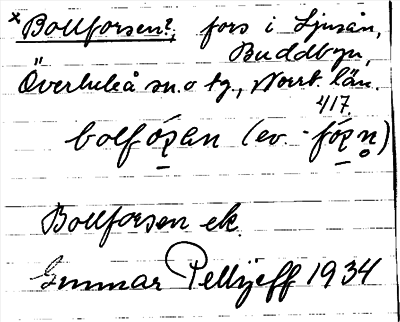 ×Bollforsen?, fors i Ljusån,
Buddbyn,
Överluleå sn. o tg., Norrb. län.
417.
bolfóṣan (ev. -fóṣn̥)
Bollforsen ek.
Gunnar Pellijeff 1934